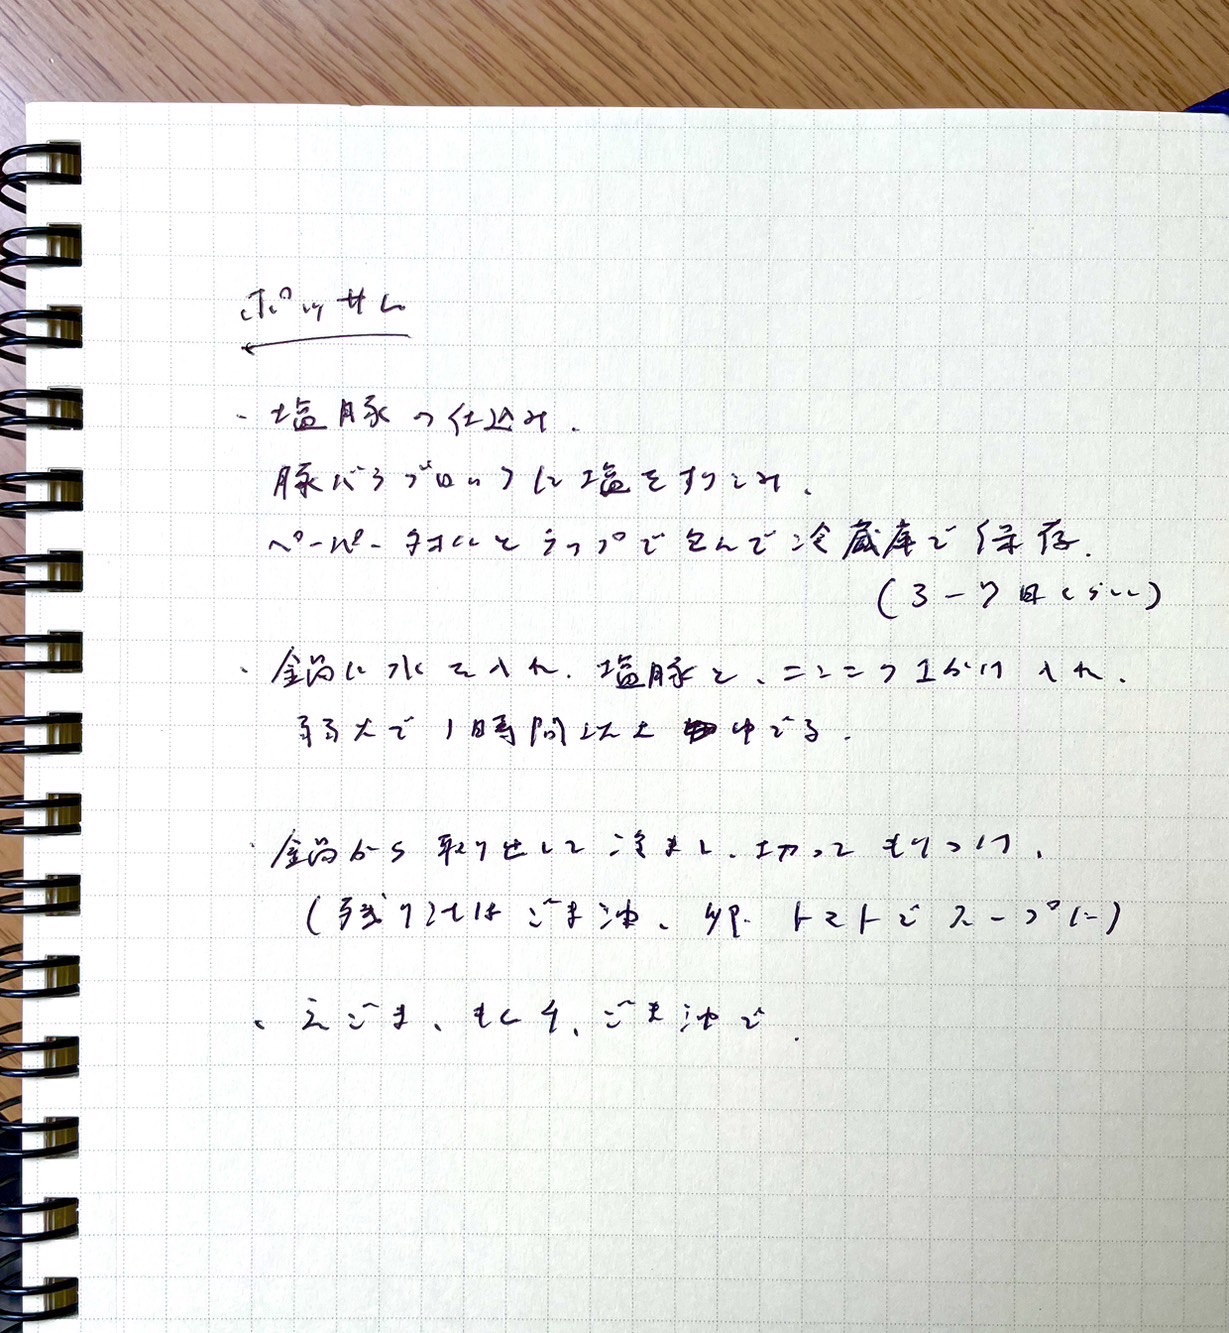 ポッサム
・塩豚の仕込み.
豚バラブロックに塩をすりこみ.
ペーパータオルとラップで包んで冷蔵庫で保存.
(3-7日くらい)
・鍋に水を入れ.塩豚と、ニンニク1かけ入れ.
弱火で1時間以上ゆでる.
・鍋から取り出して冷まし、切ってもりつけ.
(残り汁はごま油、卵.トマトでスープに)
・えごま、もしくは、ごま油で.